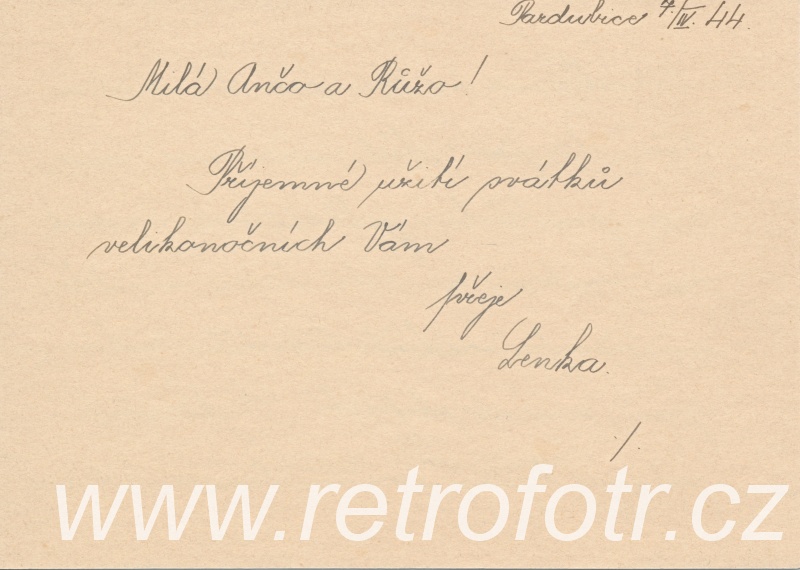 Pardubice 7./IV. 44.
Milá Ančo a Růžo!
Příjemné užití svátků
velikonočních Vám
přeje
Lenka.
./.
www.retrofotr.cz